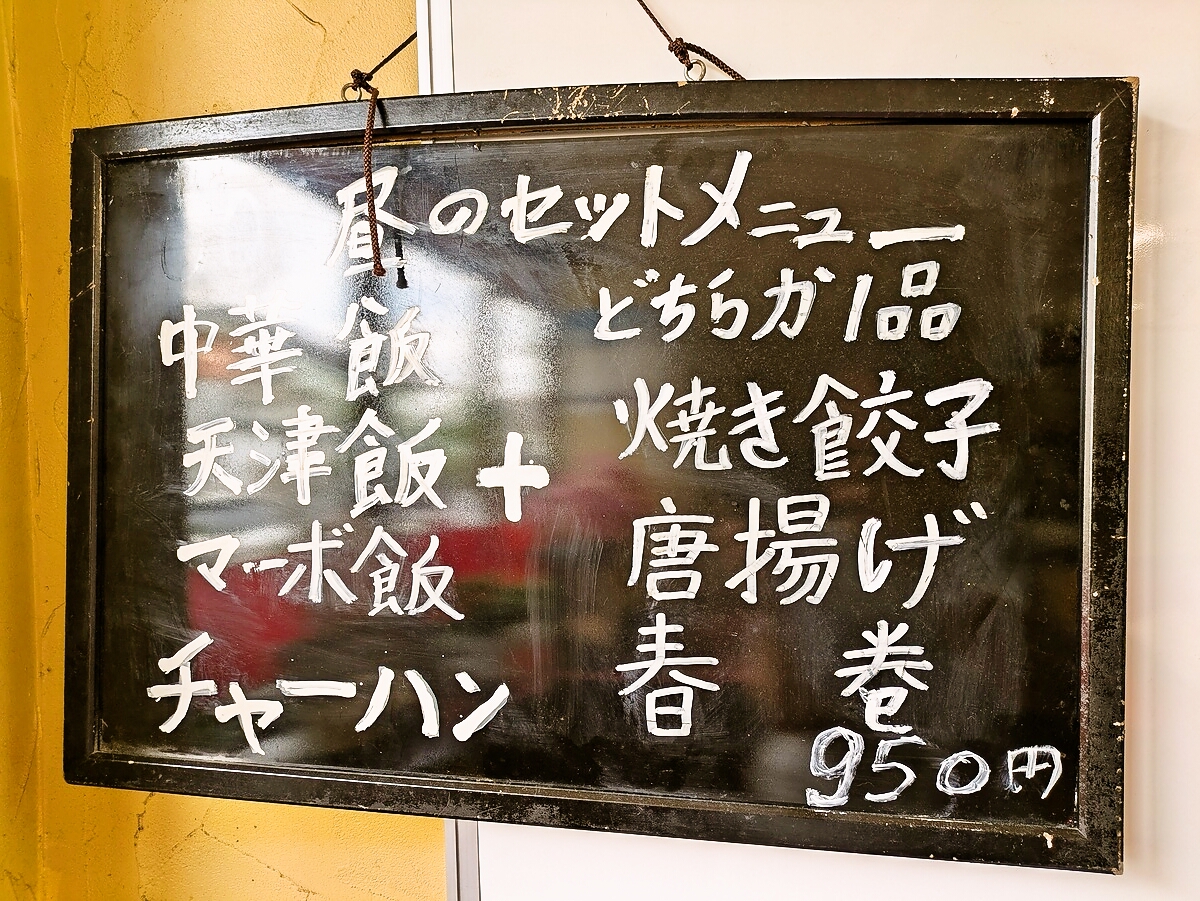 昼のセットメニュー
どちらか1品
中華飯
天津飯
マーボ飯
チャーハン
+
焼き餃子
唐揚げ
春巻
950円